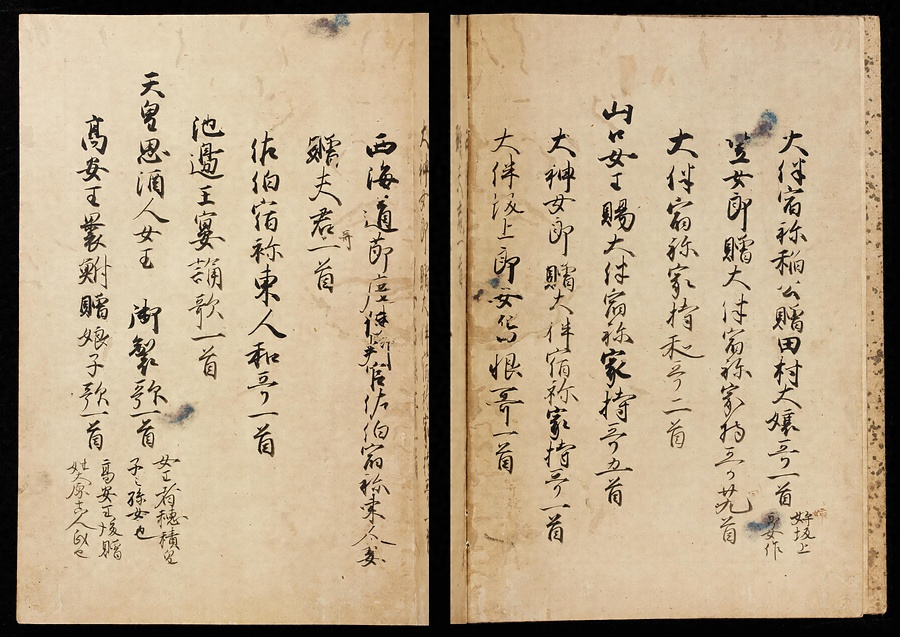 大伴宿祢稲公贈田村大嬢哥一首
姉坂上
郎女作
笠女郎贈大伴宿祢家持哥廿九首
大伴宿祢家持和哥二首
山口女王賜大伴宿祢家持哥五首
大神女郎贈大伴宿祢家持哥一首
大伴坂上郎女怨恨哥一首
西海道節度使判官佐伯宿祢東人妻
贈夫君哥一首
佐伯宿祢東人和哥一首
池邊王宴誦歌一首
天皇思酒人女王 御製歌一首
女王者穂積皇
子之孫女也
高安王褁鮒贈娘子歌一首
高安王後賜
姓大原真人氏也